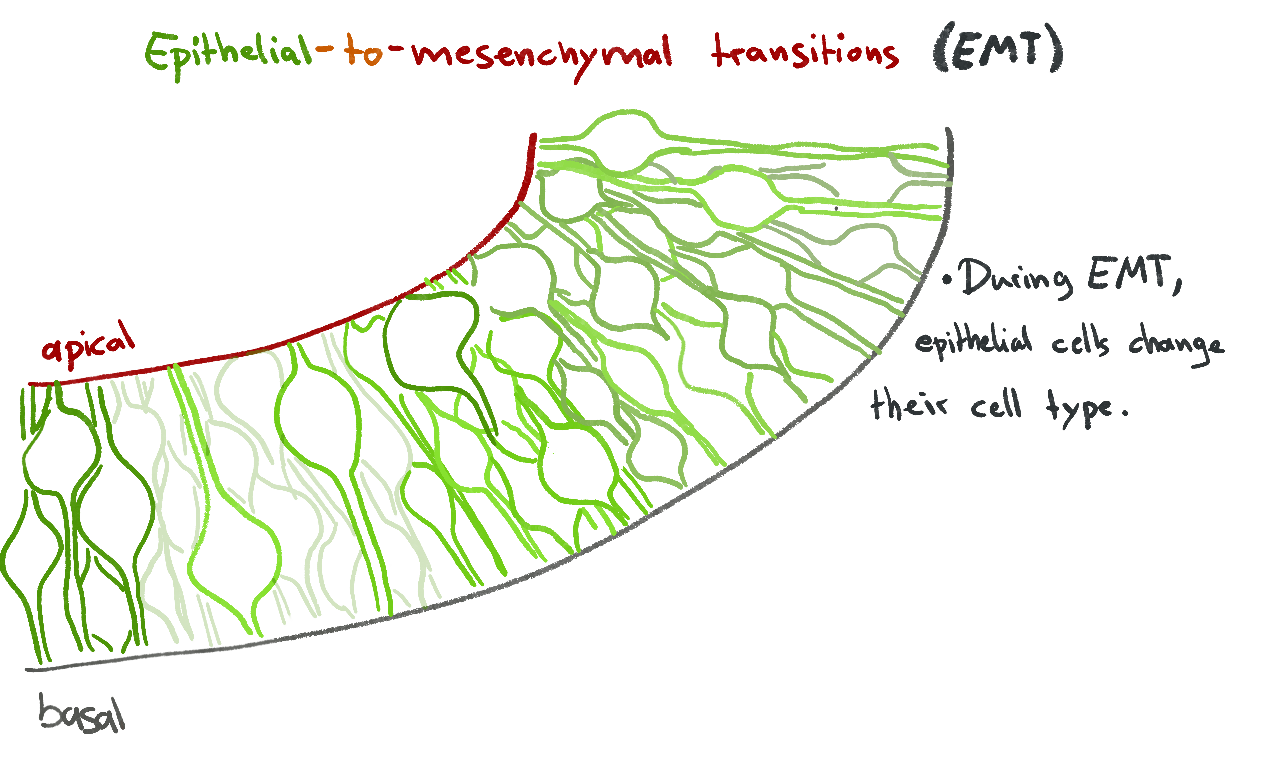 Epithelial-to-mesenchymal transitions (EMT)
• During EMT,
epithelial cells change
their cell type.
apical
basal